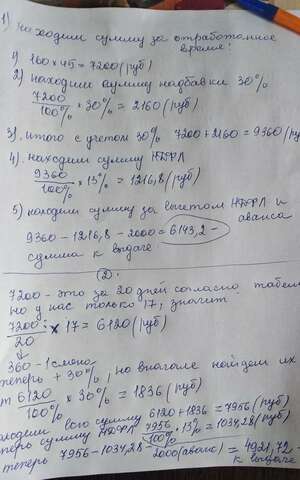 1) находим сумму за отработанное
время:
1) 160 × 45 = 7200 (руб)
2) находим сумму надбавки 30%
7200/100% × 30% = 2160 (руб)
3). итого с учетом 30% 7200+2160=9360 (руб)
4). находим сумму НДФЛ
9360/100% × 13% = 1216,8 (руб)
5) находим сумму за вычетом НДФЛ и
аванса
9360-1216,8-2000=6143,2-
сумма к выдаче
2).
7200 - это за 20 дней согласно табелю
но у нас только 17, значит
7200/20 × 17 = 6120 (руб)
360 - 1 смена
теперь + 30%, но вначале найдем их
от 6120/100% × 30% = 1836 (руб)
всю сумму 6120+1836=7956 (руб)
теперь сумму НДФЛ 7956/100% × 13% = 1034,28 (руб)
теперь 7956-1034,28-2000 (аванс) = 4921,72 -
к выдаче